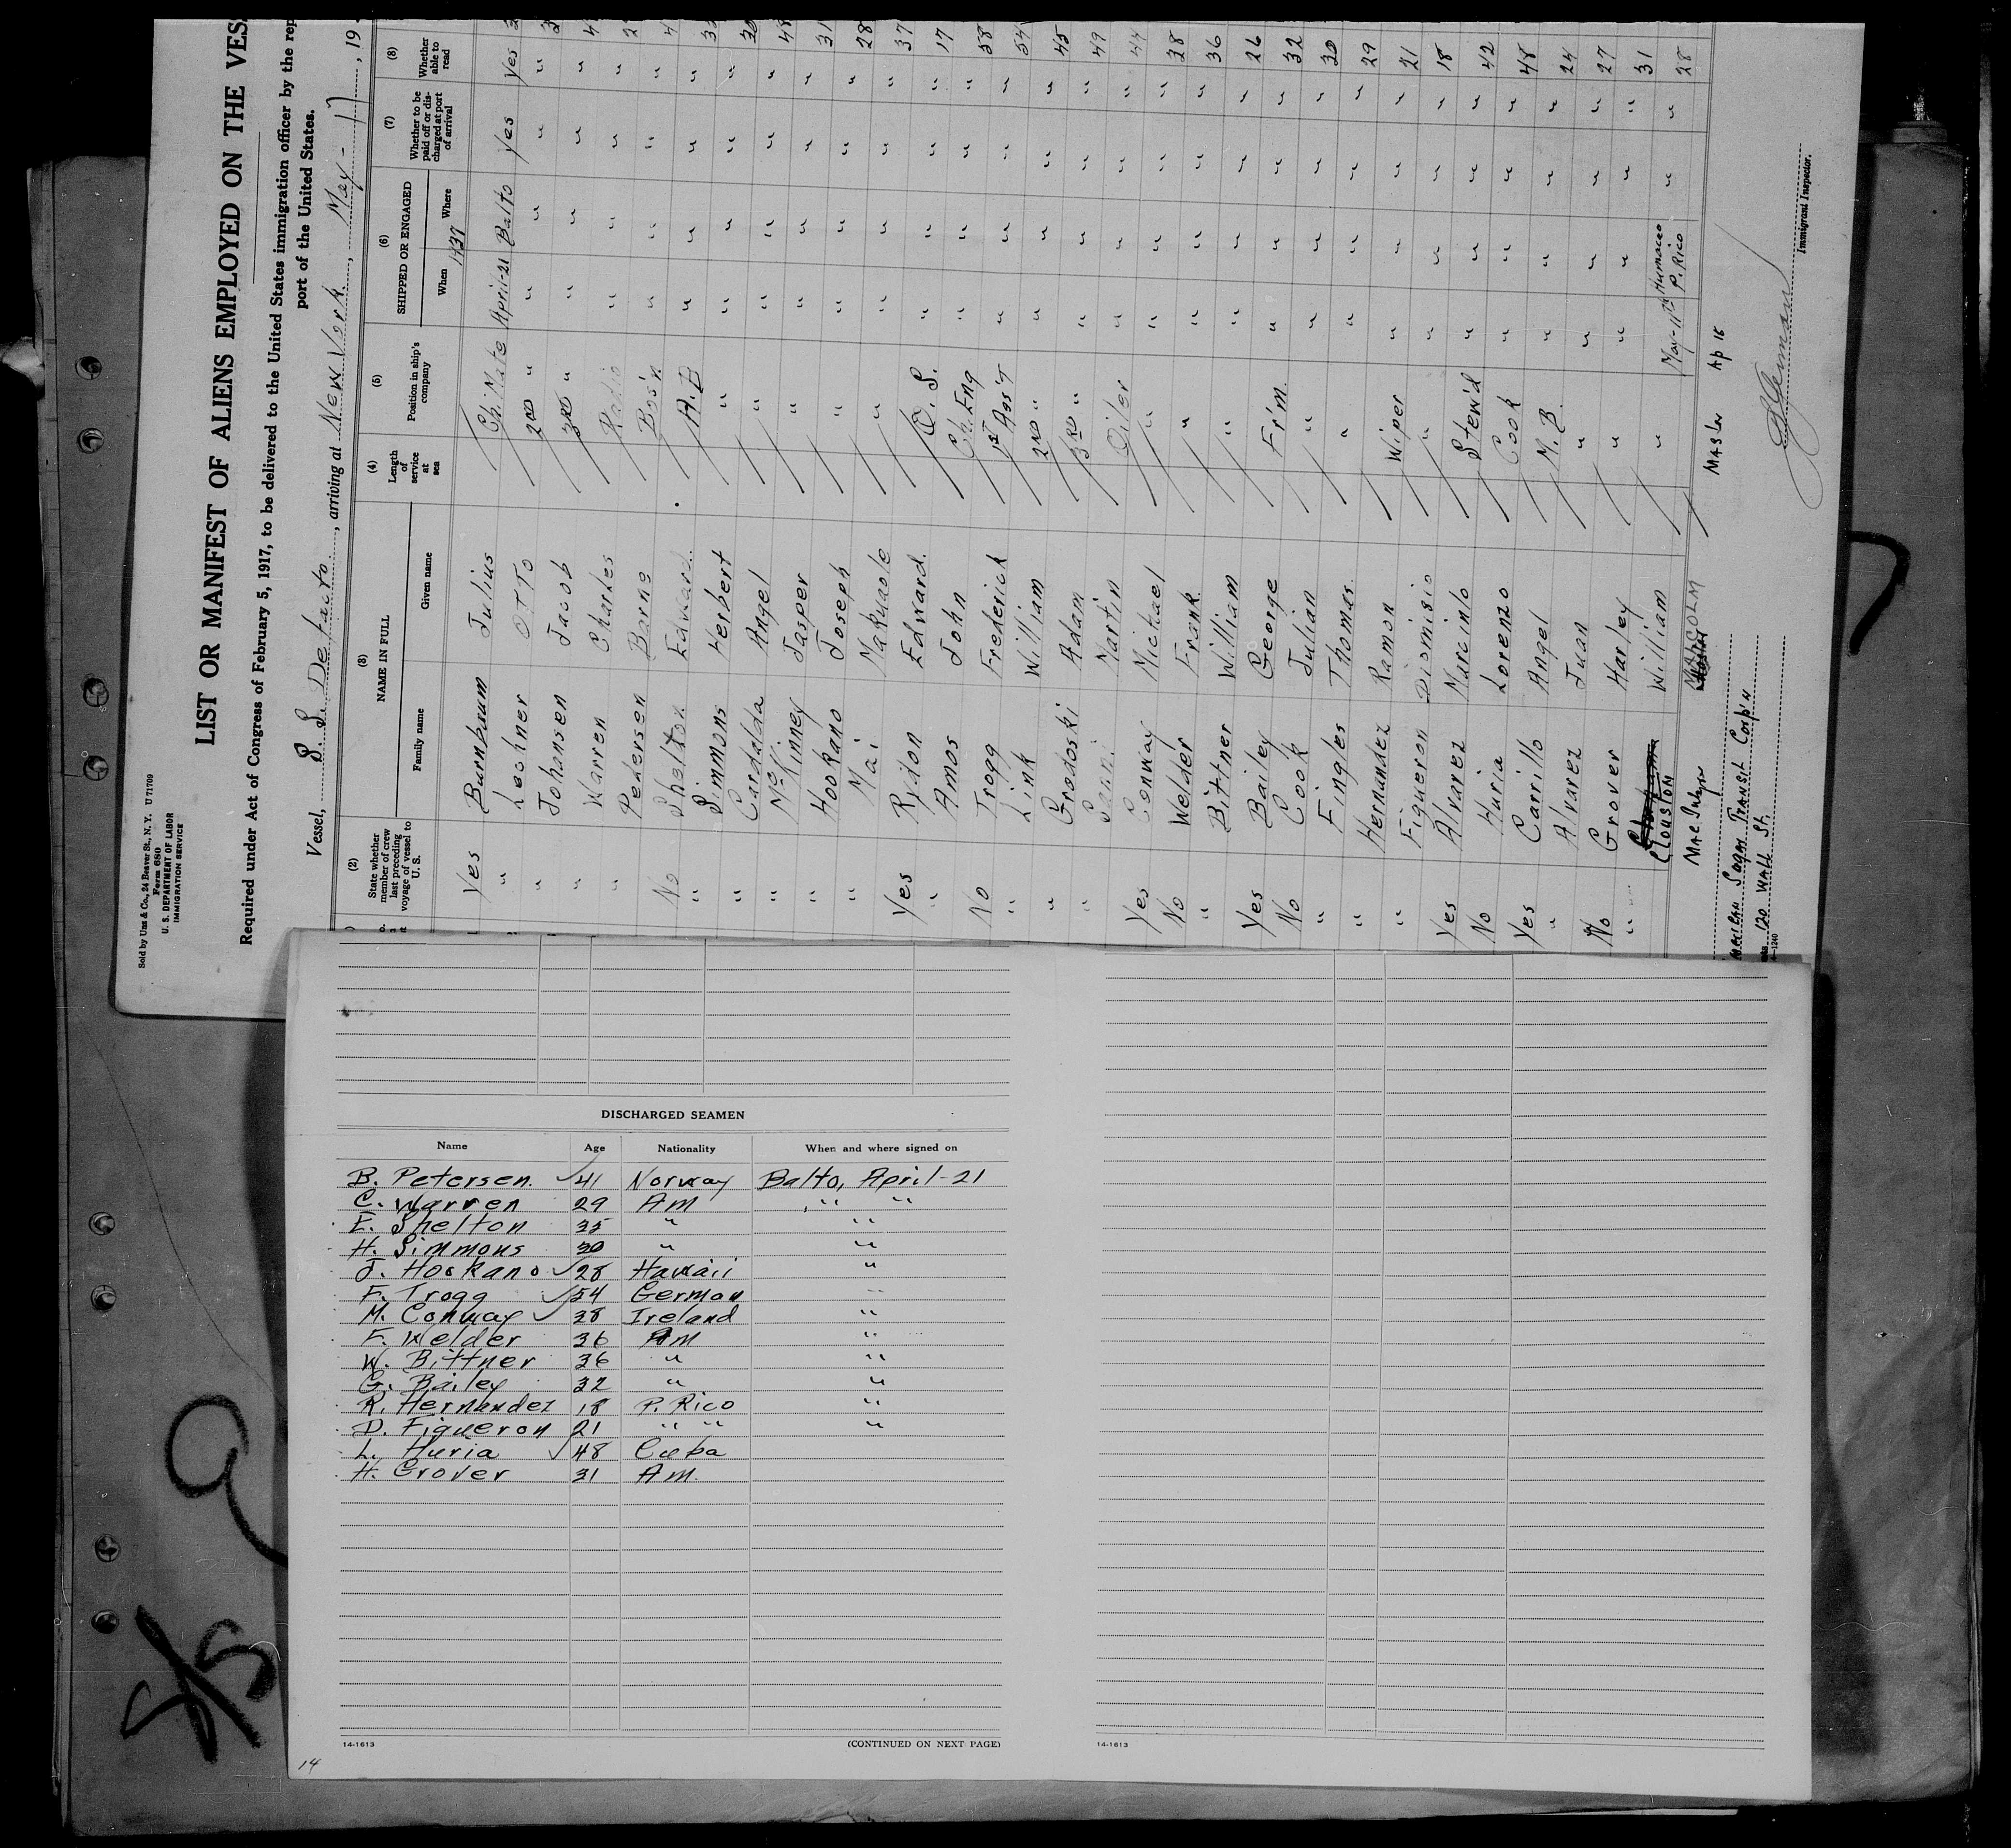 Sold by Unz & Co., 24 Beaver St., N. Y. U 71709
Form 680
U. S. DEPARTMENT OF LABOR
IMMIGRATION SERVICE
LIST OR MANIFEST OF ALIENS EMPLOYED ON THE VES
Required under Act of Congress of February 5, 1917, to be delivered to the United States immigration officer by the rep
port of the United States.
Vessel, S. S. Defacto, arriving at New York, May - 17, 19
(2) State whether member of crew last preceding voyage of vessel to U. S.
(3) NAME IN FULL
Family name Given name
(4) Length of service at sea
(5) Position in ship's company
(6) SHIPPED OR ENGAGED
When 1937 Where
(7) Whether to be paid off or discharged at port of arrival
(8) Whether able to read
Yes Barnbaum Julius Ch. Mate April-21 Balto Yes Yes
" Leshner Otto 2ND " " " " "
" Johansen Jacob 3RD " " " " "
" Warren Charles Radio " " " "
" Pedersen Barne Bos'n " " " "
No Shelton Edward A.B " " " "
" Simmons Herbert " " " " "
" Cardalda Angel " " " " " 48
" McKinney Jasper " " " " " 31
" Hookano Joseph " " " " " 28
" Mai Nakuaole " " " " " 37
Yes Rydon Edward O. S. " " " " 17
" Amos John Ch. Eng " " " " 58
No Trogg Frederick 1ST Ass'T " " " " 54
" Link William 2ND " " " " " 45
" Grodoski Adam 3RD " " " " " 49
" Martin Oiler " " " " 44
Yes Conway Michael " " " " " 38
No Welder Frank " " " " " 36
" Bittner William " " " " " 26
Yes Bailey George F'm. " " " " 32
No Cook Julian " " " " " 30
" Fingles Thomas " " " " " 29
" Hernandez Ramon Wiper " " " " 21
" Figueron Dionisio " " " " " 18
Yes Alvarez Narcinlo Stew'd " " " " 42
No Huria Lorenzo Cook " " " " 48
Yes Carrillo Angel M. B. " " " " 24
" Alvarez Juan " " " " " 27
No Grover Harley " " " " " 31
" Clouston William " May-11th Humacao P. Rico " " 28
MALCOLM Master Ap 18
Sugar Transit Corp'n
120 Wall St.
14-1240
Immigrant Inspector.
DISCHARGED SEAMEN
Name Age Nationality When and where signed on
B. Petersen 41 Norway Balto, April-21
C. Warren 29 Am " "
E. Shelton 35 " "
H. Simmons 30 " "
J. Hookano 28 Hawaii "
F. Trogg 54 German "
M. Conway 38 Ireland "
F. Welder 36 Am "
W. Bittner 36 " "
G. Bailey 32 " "
R. Hernandez 18 P. Rico "
D. Figueron 21 " " "
L. Huria 48 Cuba
H. Grover 31 Am.
14-1613 (CONTINUED ON NEXT PAGE)
14-1613
14